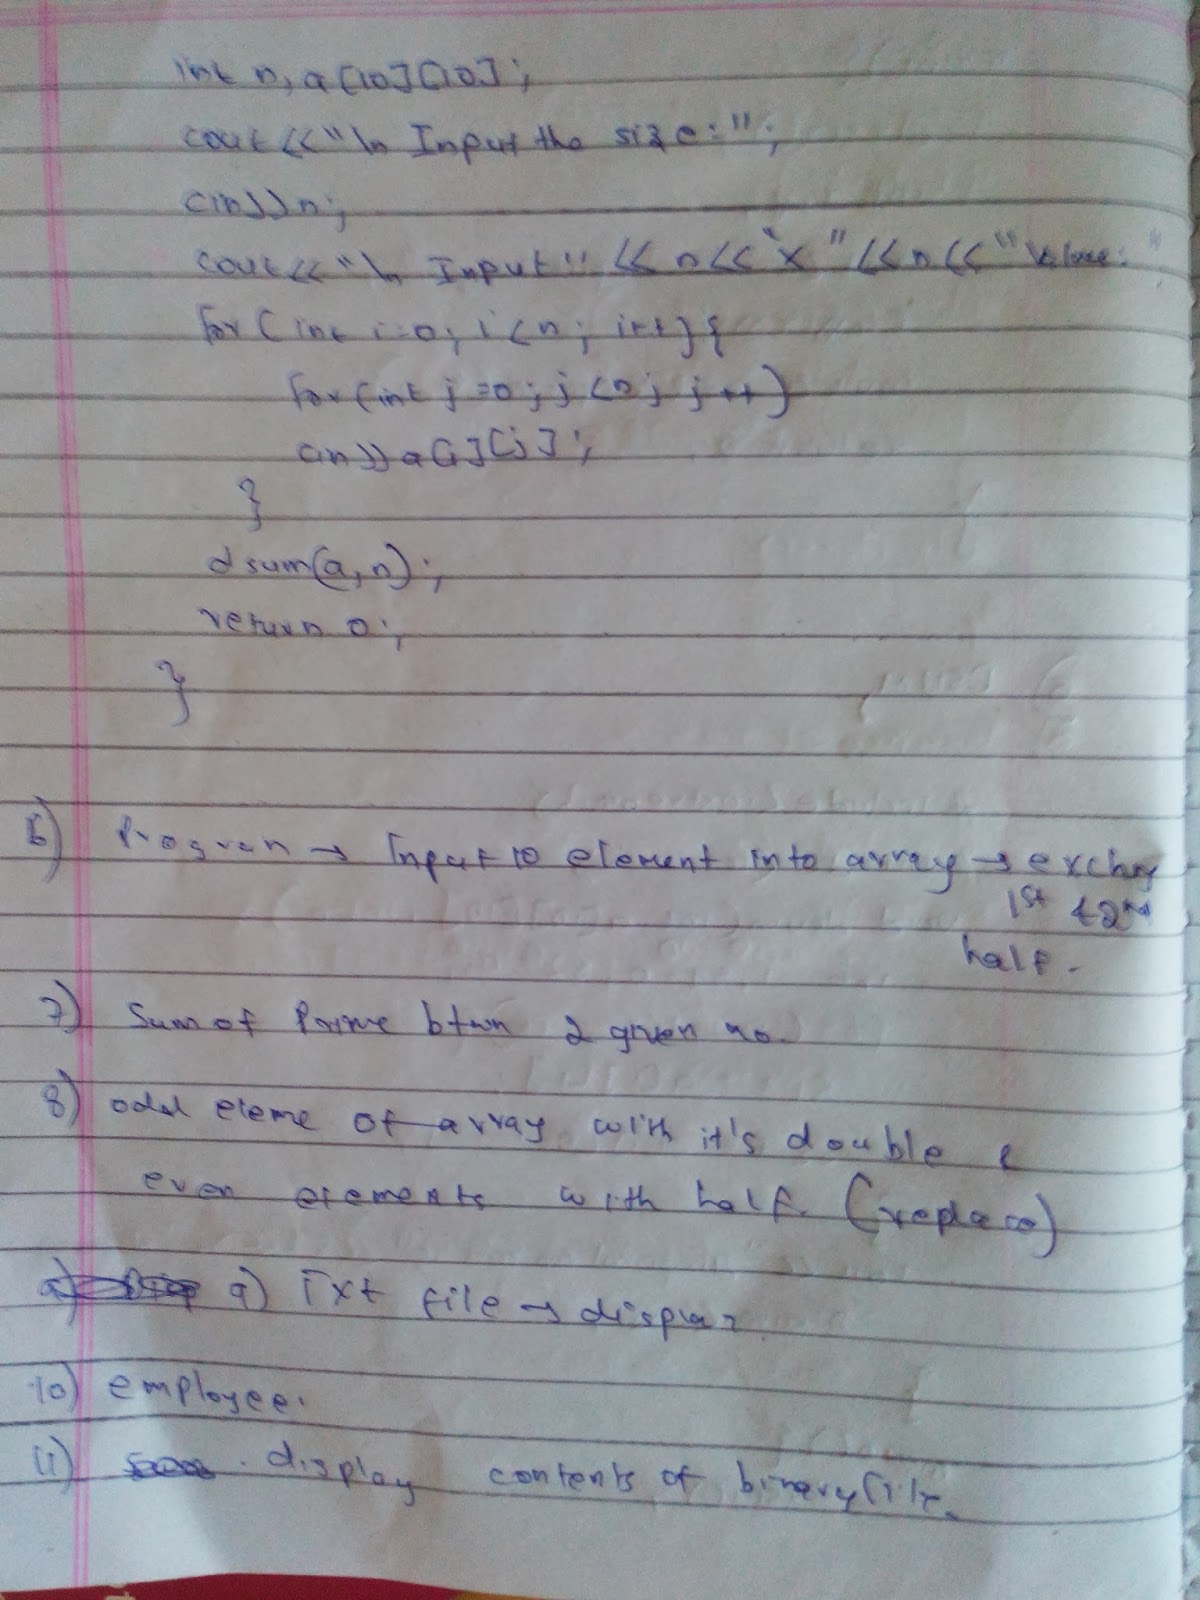 int n, a[10][10];
cout<<"\n Input the size:";
cin>>n;
cout<<"\n Input"<<n<<"x"<<n<<" Value: "
for(int i=0; i<n; i++){
for(int j=0; j<n; j++)
cin>>a[i][j];
}
dsum(a,n);
return 0;
}
6) Program → Input 10 element into array → exchng
1st & 2nd
half.
7) Sum of Prime btwn 2 given no.
8) odd eleme of array with it's double &
even elements with half. (replace)
9) Txt file → display
10) employee.
11) display contents of binary file.